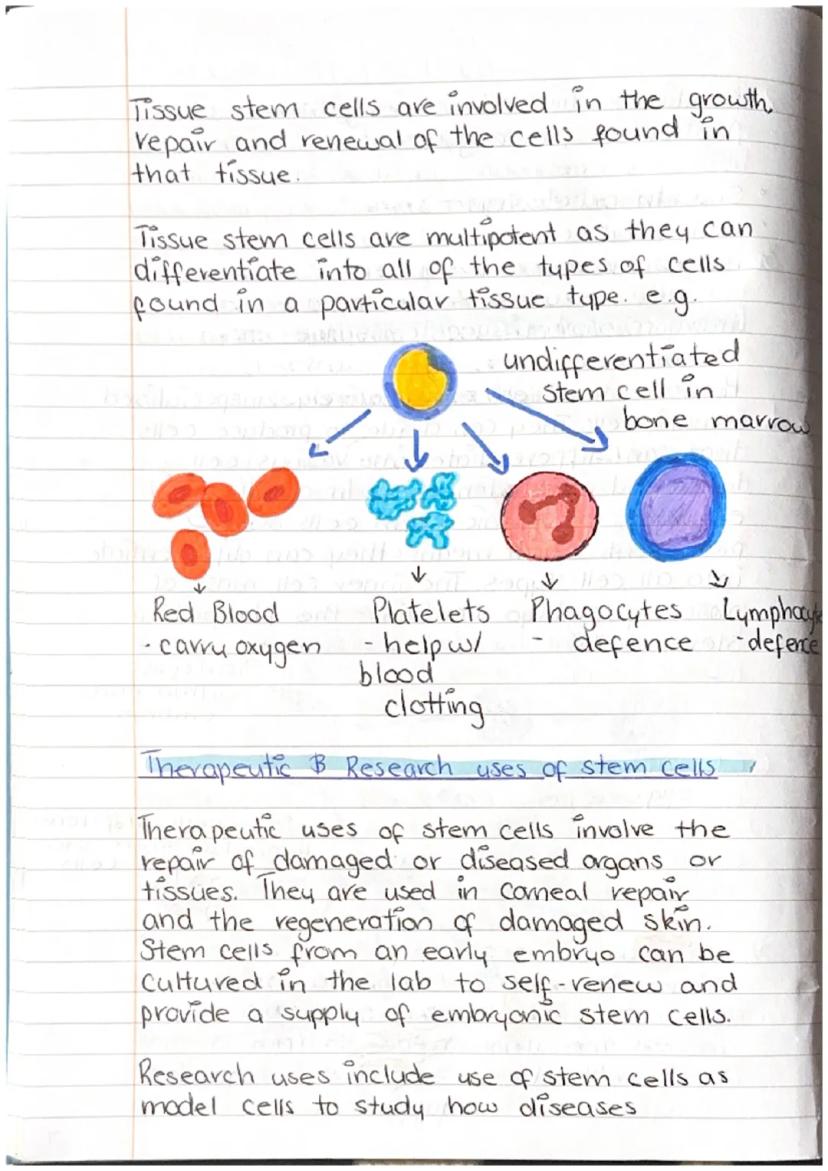 Tissue stem cells are involved in the growth,
repair and renewal of the cells found in
that tissue.
Tissue stem cells are multipotent as they can
differentiate into all of the types of cells
found in a particular tissue type. e.g.
undifferentiated
stem cell in
bone marrow
Red Blood
- carry oxygen
Platelets
- help w/
blood
clotting
Phagocytes
- defence
Lymphocyte
- defence
Therapeutic & Research uses of stem cells
Therapeutic uses of stem cells involve the
repair of damaged or diseased organs or
tissues. They are used in corneal repair
and the regeneration of damaged skin.
Stem cells from an early embryo can be
cultured in the lab to self-renew and
provide a supply of embryonic stem cells.
Research uses include use of stem cells as
model cells to study how diseases